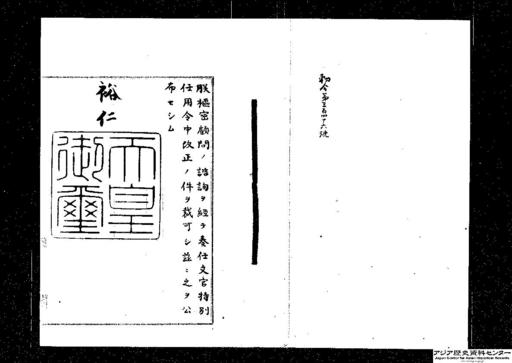 勅令第三百四十六號
朕樞密顧問ノ諮詢ヲ經テ奏任文官特別
任用令中改正ノ件ヲ裁可シ茲ニ之ヲ公
布セシム
裕仁
天皇
御璽
アジア歴史資料センター
Japan Center for Asian Historical Records